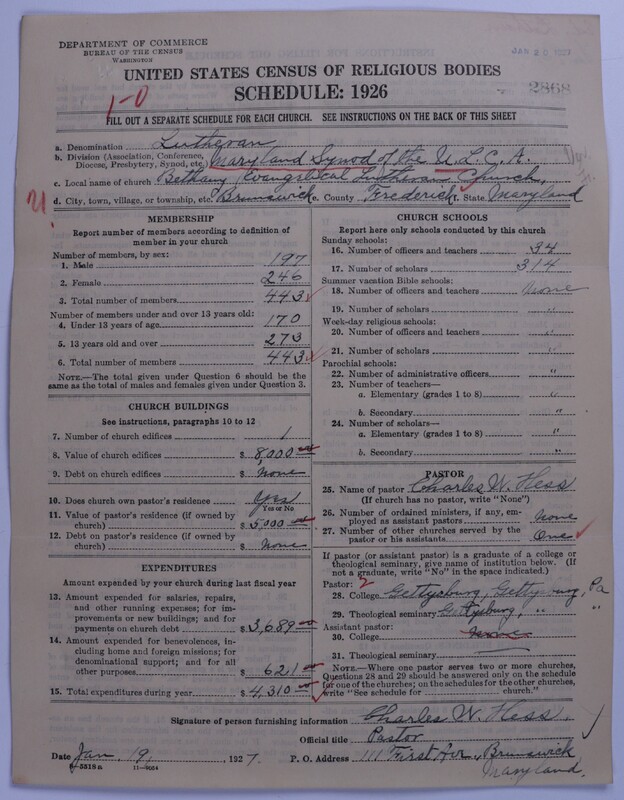 DEPARTMENT OF COMMERCE
BUREAU OF THE CENSUS
WASHINGTON
UNITED STATES CENSUS OF RELIGIOUS BODIES
SCHEDULE: 1926
2868
1-0
FILL OUT A SEPARATE SCHEDULE FOR EACH CHURCH. SEE INSTRUCTIONS ON THE BACK OF THIS SHEET
a. Denomination Lutheran
b. Division (Association, Conference, Diocese, Presbytery, Synod, etc.) Maryland Synod of the U. L. C. A.
c. Local name of church Bethany Evangelical Lutheran Church,
d. City, town, village, or township, etc. Brunswick e. County Frederick f. State Maryland
MEMBERSHIP
Report number of members according to definition of member in your church
Number of members, by sex:
1. Male 197
2. Female 246
3. Total number of members 443
Number of members under and over 13 years old:
4. Under 13 years of age 170
5. 13 years old and over 273
6. Total number of members 443
NOTE.—The total given under Question 6 should be the same as the total of males and females given under Question 3.
CHURCH BUILDINGS
See instructions, paragraphs 10 to 12
7. Number of church edifices 1
8. Value of church edifices $ 8,000 00
9. Debt on church edifices $ None
10. Does church own pastor's residence Yes
Yes or No
11. Value of pastor's residence (if owned by church) $ 5,000 00
12. Debt on pastor's residence (if owned by church) $ None
EXPENDITURES
Amount expended by your church during last fiscal year
13. Amount expended for salaries, repairs, and other running expenses; for improvements or new buildings; and for payments on church debt $ 3,689 00
14. Amount expended for benevolences, including home and foreign missions; for denominational support; and for all other purposes $ 621 00
15. Total expenditures during year $ 4,310 00
CHURCH SCHOOLS
Report here only schools conducted by this church
Sunday schools:
16. Number of officers and teachers 34
17. Number of scholars 314
Summer vacation Bible schools:
18. Number of officers and teachers None
19. Number of scholars "
Week-day religious schools:
20. Number of officers and teachers "
21. Number of scholars "
Parochial schools:
22. Number of administrative officers "
23. Number of teachers—
a. Elementary (grades 1 to 8) "
b. Secondary "
24. Number of scholars—
a. Elementary (grades 1 to 8) "
b. Secondary "
PASTOR
25. Name of pastor Charles W. Hess
(If church has no pastor, write "None")
26. Number of ordained ministers, if any, employed as assistant pastors None
27. Number of other churches served by the pastor or his assistants One
If pastor (or assistant pastor) is a graduate of a college or theological seminary, give name of institution below. (If not a graduate, write "No" in the space indicated.)
Pastor: 2
28. College Gettysburg, Gettysburg, Pa
29. Theological seminary Gettysburg, " "
Assistant pastor:
30. College None
31. Theological seminary
NOTE.—Where one pastor serves two or more churches, Questions 28 and 29 should be answered only on the schedule for one of the churches; on the schedules for the other churches, write "See schedule for church."
Signature of person furnishing information Charles W. Hess.
Official title Pastor
Date Jan. 19, 1927. P. O. Address 111 First Av., Brunswick
Maryland.
8-3318a 11-9034